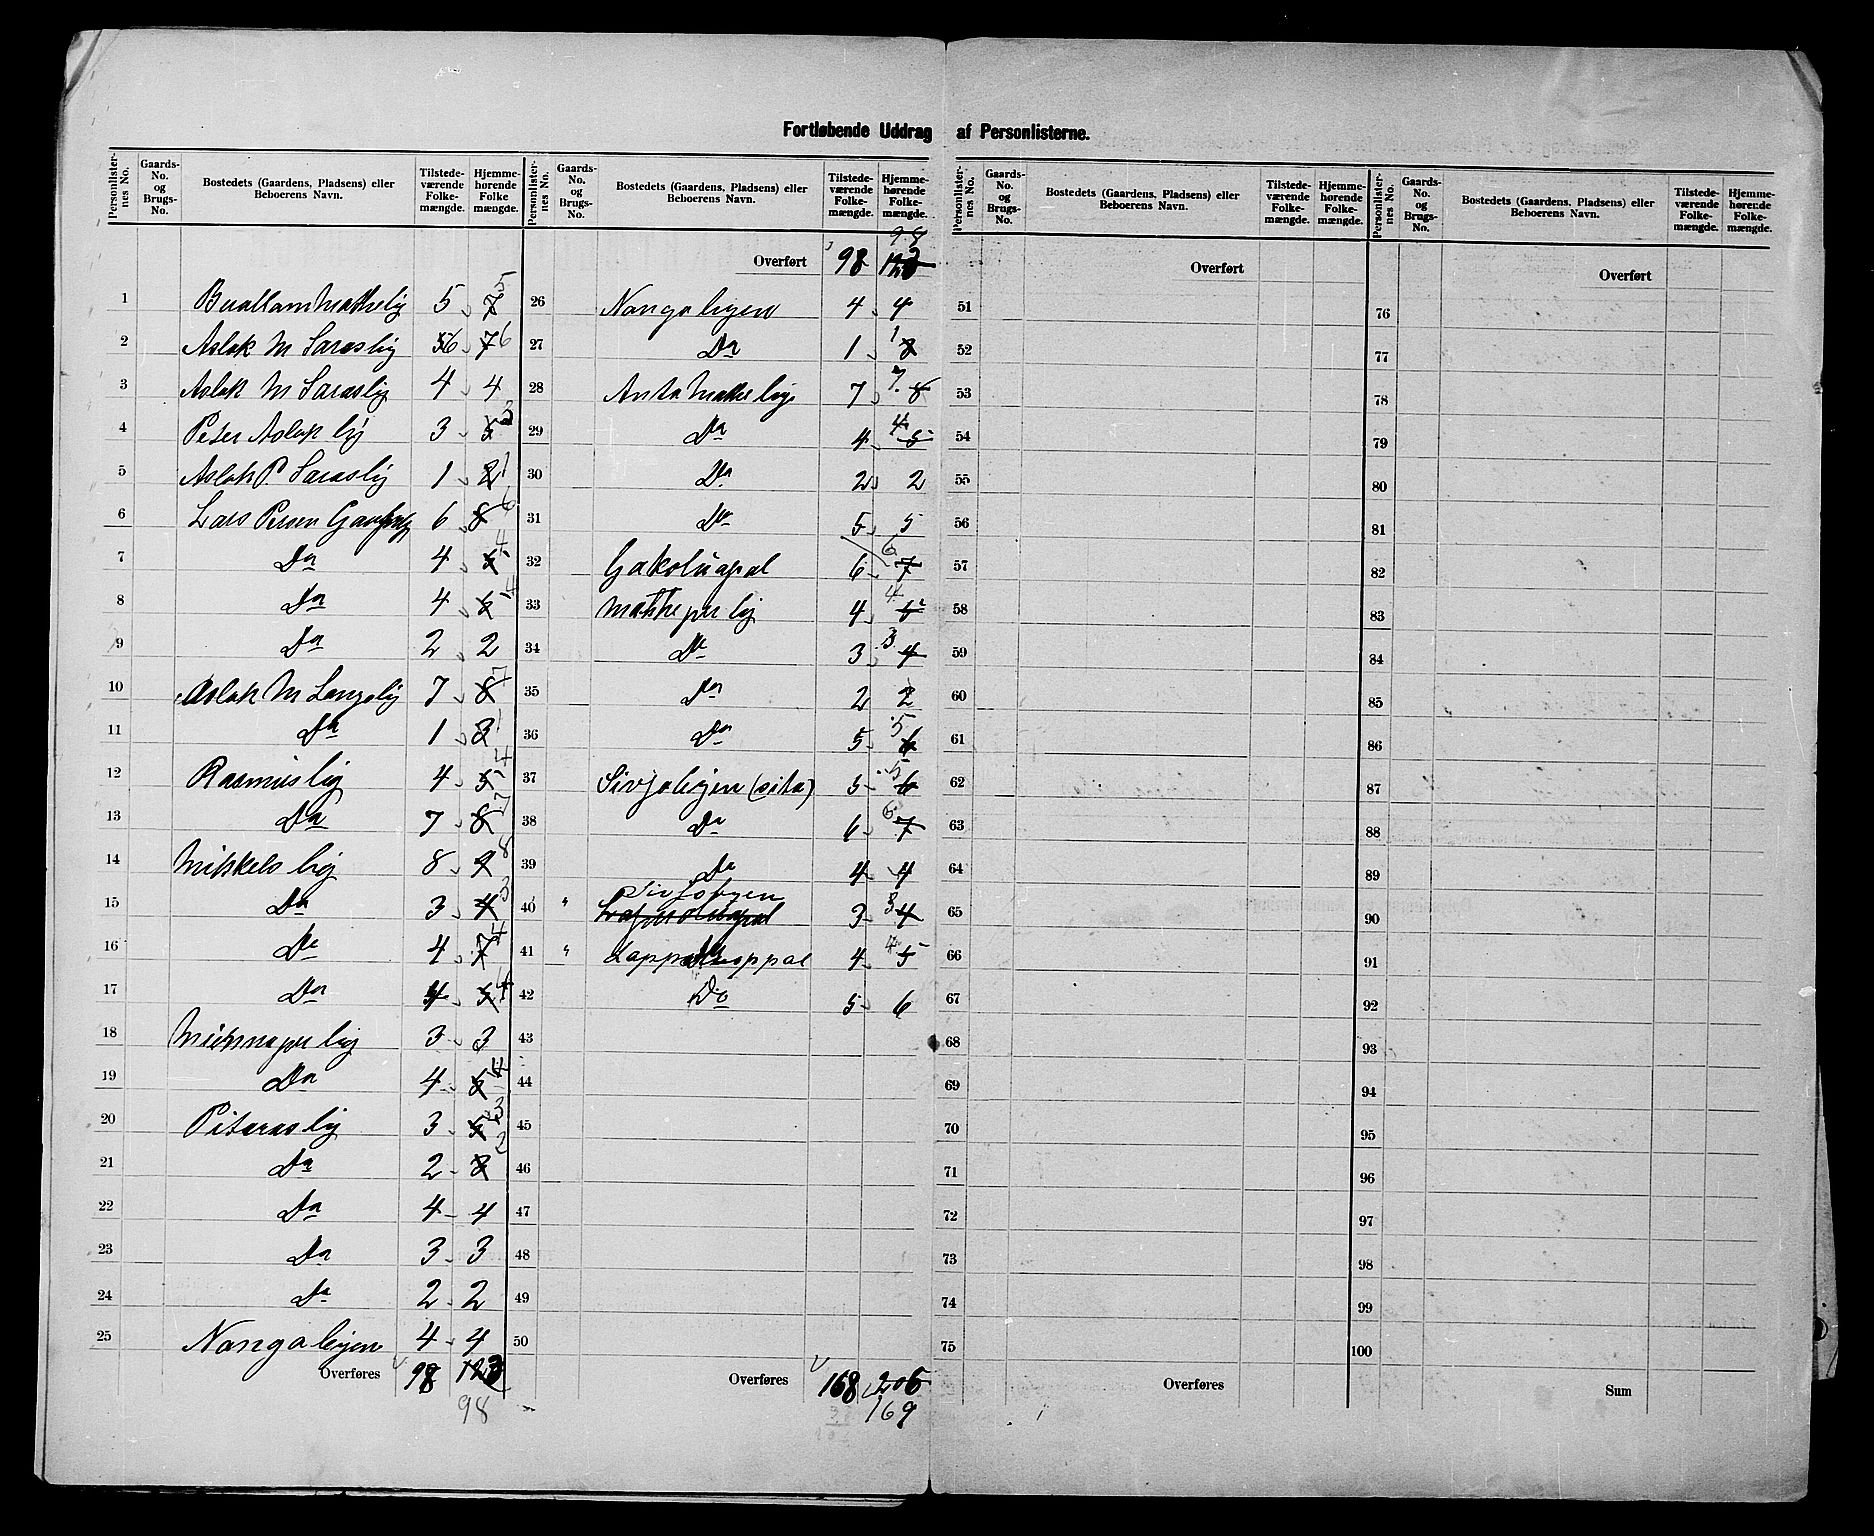 Fortløbende Uddrag af Personlisterne.
Personlister-nes No. Gaards-No. og Brugs-No. Bostedets (Gaardens, Pladsens) eller Beboerens Navn. Tilstede-værende Folke-mængde. Hjemme-hørende Folke mængde.
Personlister-nes No. Gaards-No. og Brugs-No. Bostedets (Gaardens, Pladsens) eller Beboerens Navn. Tilstede-værende Folke-mængde. Hjemme-hørende Folke-mængde.
Personlister-nes No. Gaards-No. og Brugs-No. Bostedets (Gaardens, Pladsens) eller Beboerens Navn. Tilstede-værende Folke-mængde. Hjemme-hørende Folke-mængde.
Personlister-nes No. Gaards-No. og Brugs-No. Bostedets (Gaardens, Pladsens) eller Beboerens Navn. Tilstede-værende Folke-mængde. Hjemme-hørende Folke-mængde.
1 5 7 5
2 Aslak M Saraslig 6 7 6
3 Aslak M Saraslig 4 4
4 Peter Aslak lig 3 5 3
5 Aslak P. Saraslig 1 2 1
6 Lars Persen 6 8 6
7 Do 4 5 4
8 Do 4 5 4
9 Do 2 2
10 Aslak M Langslig 7 8 7
11 Do 1 2
12 Rasmuslig 4 5 4
13 Do 7 8 7
14 Mikkels lig 8 9 8
15 Do 3 4 3
16 Do 4 7 4
17 Do 4 5 4
18 3 3
19 Do 4 5 4
20 Pitaraslig 3 5 3
21 Do 2 3 2
22 Do 4 4
23 Do 3 3
24 Do 2 2
25 Nangaligen 4 4
Overføres 98 123
98
98
Overført 98 123
26 Nangaligen 4 4
27 Do 1 1 2
28 Anta Mattelig 7 7 8
29 Do 4 4 5
30 Do 2 2
31 Do 5 5
32 Gakoluapal 6 6 7
33 Matteper lig 4 4 5
34 Do 3 3 4
35 Do 2 2
36 Do 5 5 6
37 Sivjoligen (sita) 5 5 6
38 Do 6 6 7
39 Do 4 4
40 " 3 3 4
41 " 4 4 5
42 Do 5 6
43
44
45
46
47
48
49
50
Overføres 168 206
169
Overført
51
52
53
54
55
56
57
58
59
60
61
62
63
64
65
66
67
68
69
70
71
72
73
74
75
Overføres
Overført
76
77
78
79
80
81
82
83
84
85
86
87
88
89
90
91
92
93
94
95
96
97
98
99
100
Sum